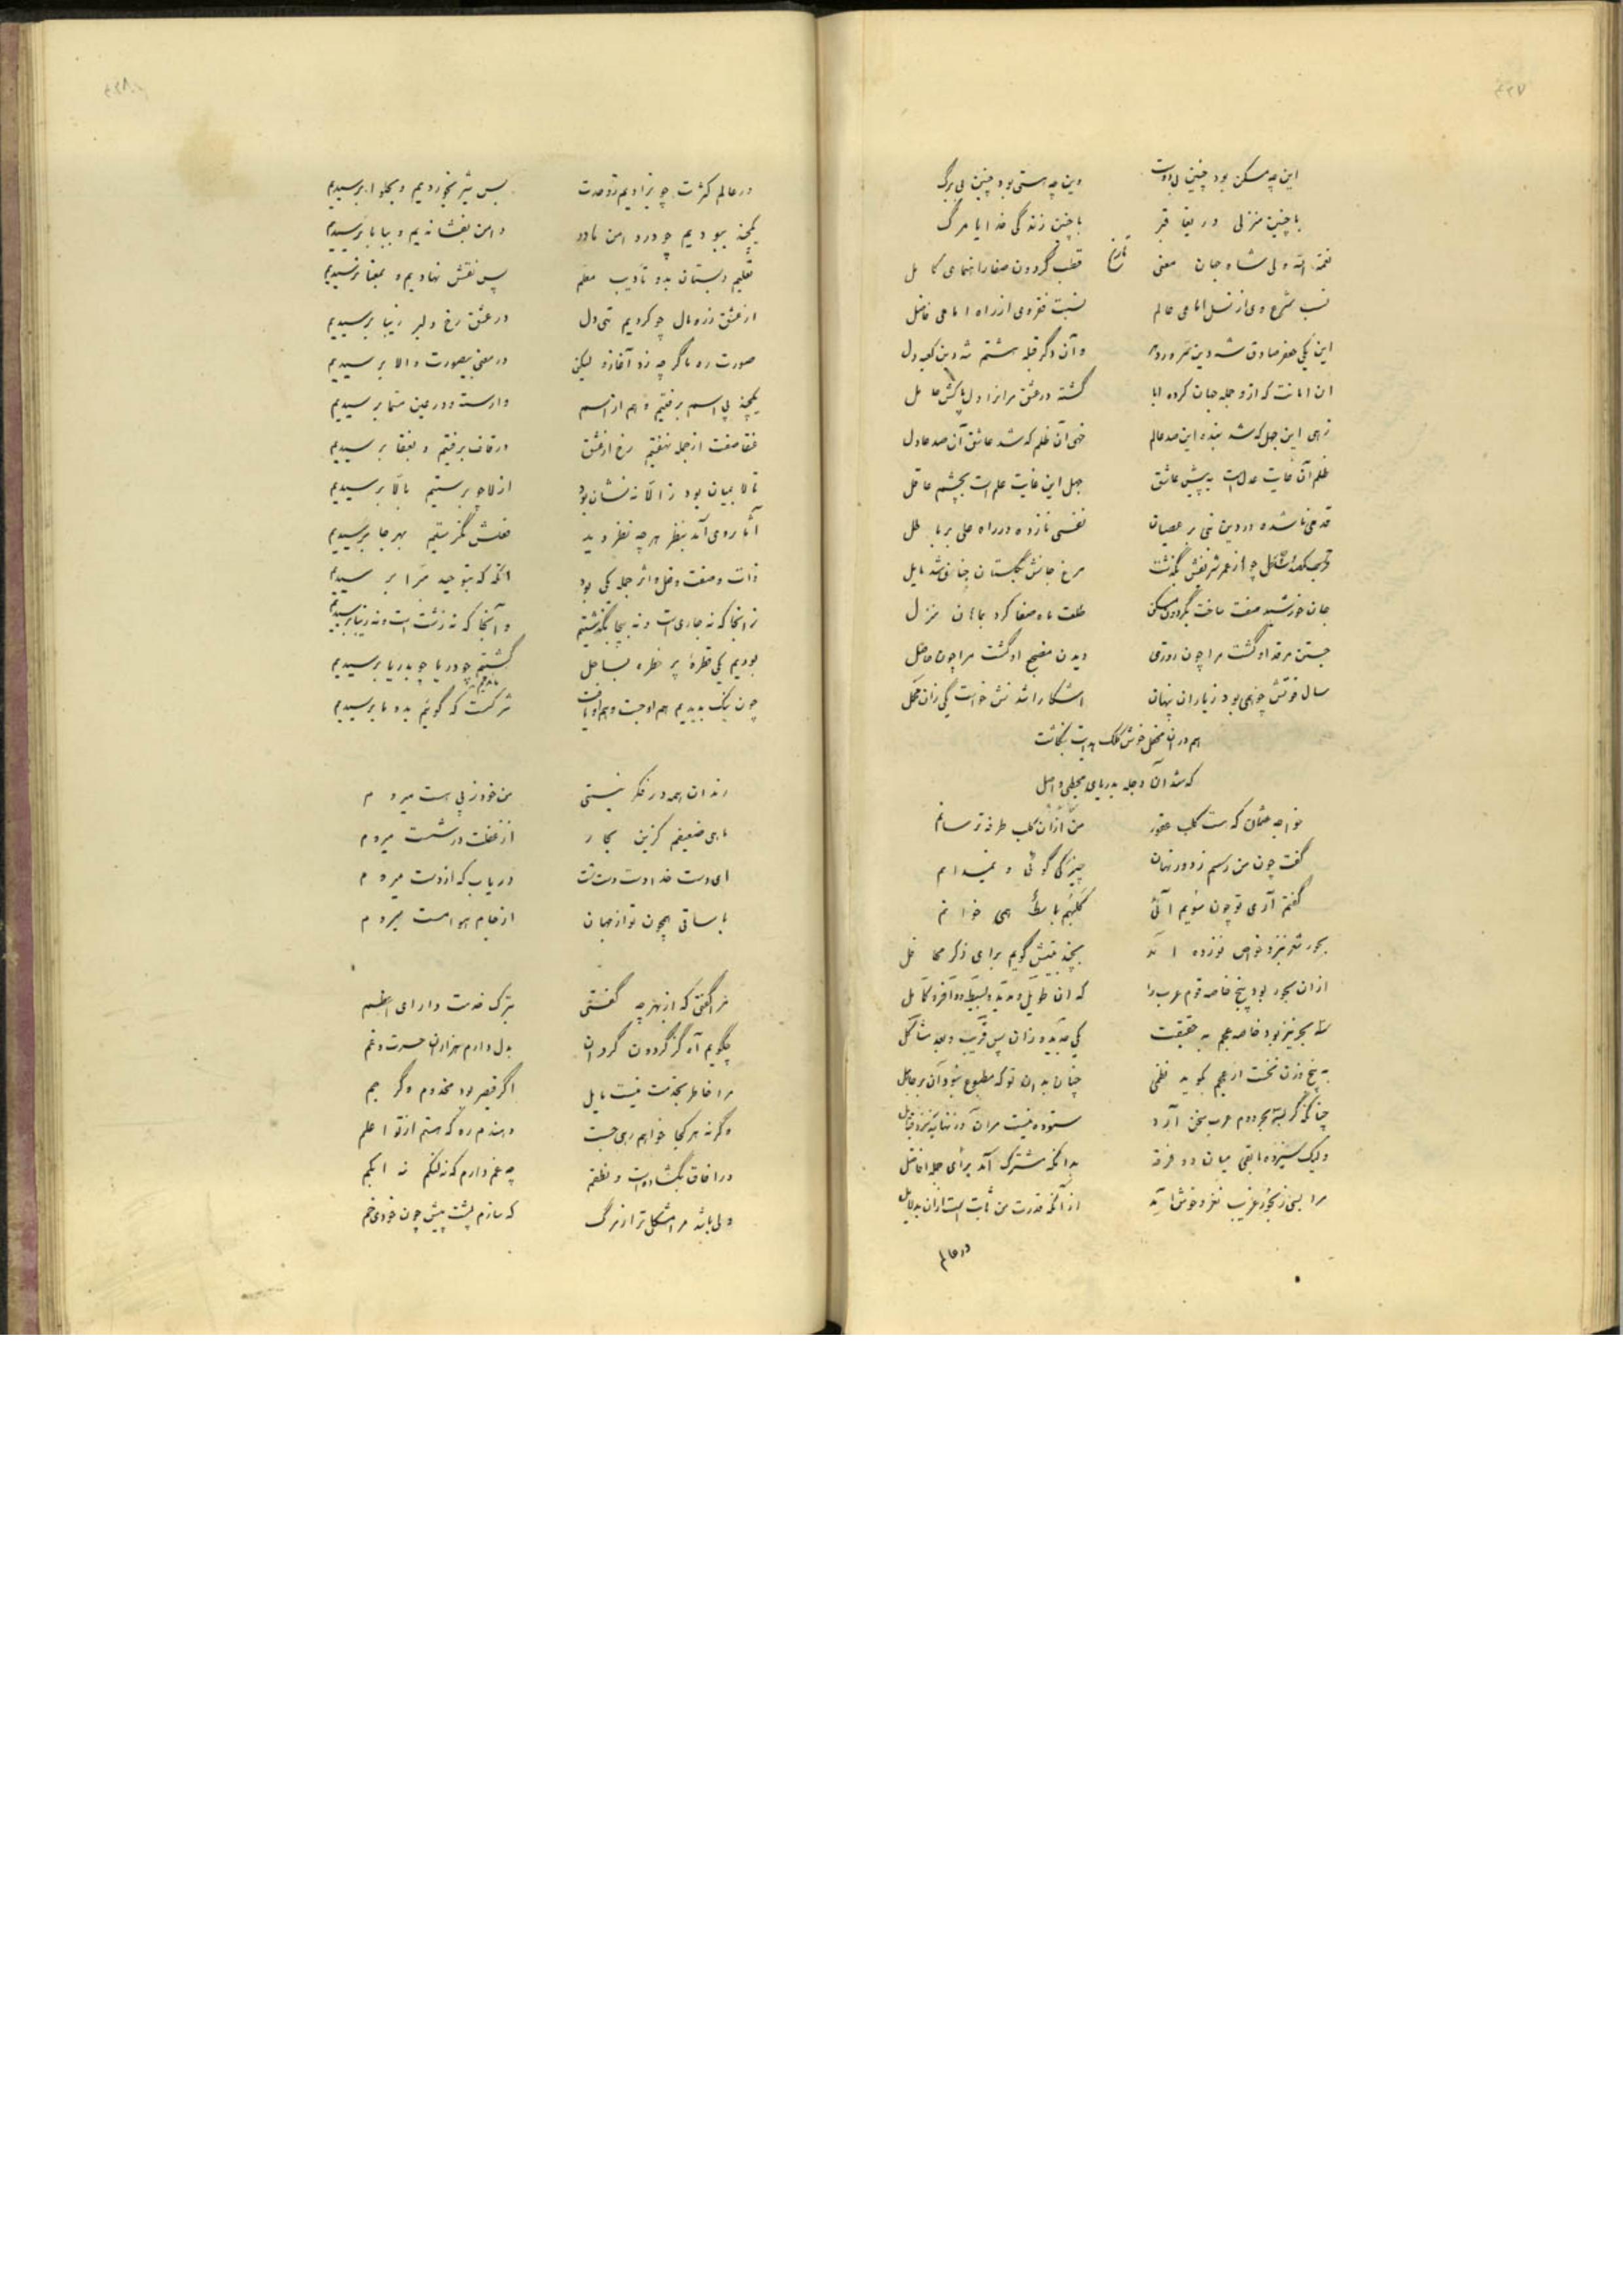 ۴۲۷
این چه مسکن بود چنین بی دوست وین چه هستی بود چنین بی برگ
با چنین منزلی دریغا قبر با چنین زندگی خدایا مرگ
تاریخ
نعمة الله ولی شاه جهان معنی قطب گردون صفا راهنمای کامل
نسب شرع وی از نسل امامی عالم نسبت فقر وی از راه امامی فاضل
این یکی جعفر صادق شه دین سرور و آن دگر قبله هشتم شه دین کعبه دل
آن امانت که ازو جمله جهان کرده ابا گشته در عشق مر آنرا دل پاکش حامل
زهی این جهل که شد بنده این صد عالم خهی آن ظلم که شد عاشق آن صد عادل
ظلم آن غایت عدل است به پیش عاشق جهل این غایت علم است بچشم عاقل
قدمی نا شده در دین نبی بر عصیان نفسی نازده در راه علی بر باطل
چو از عمر شریفش بگذشت مرغ جانش بگلستان جنان شد مایل
جان خورشید صفت ساخت بگردون مسکن طلعت ماه صفا کرد منزل
جستن مرقد او گشت مرا چون روزی دیدن مضجع او گشت مرا چون حاصل
سال فوتش چو همی بود ز یاران پنهان آشکارا شدنش خواست یکی زان محفل
هم در آن محفل خوش کلک هدایت بنگاشت
که شد آن دجله بدریای محیطی واصل
خواجه عثمان که هست کلب عقور من از آن کلب طرفه ترسانم
گفت چون من رسم ز دور نهان چیزکی گوئی و نمیدانم
گفتم آری تو چون سویم آئی کلبهم باسط همی خوانم
بحور شعر بنزد نوزده آمد بچند بیتش گویم برای ذکر محافل
از آن بحور بود پنج خاصه قوم عرب را که آن طویل و مدید و بسیط و وافر و کامل
سه بحر نیز بود خاصه عجم به حقیقت یکی جدید و زان پس قریب و بعد مشاکل
به پنج وزن نخست ار عجم بگوید نظمی چنان بدان تو که مطبوع نبود آن بر عاقل
چنانکه گر بسه بحر دوم عرب سخن آرد ستوده نیست مر آن
ولیک سیزده مابقی میان دو فرقه بدانکه مشترک آمد برای جمله افاضل
مرا بسی ز بحور غریب نغز و خوش آید از آنکه قدرت من ثابت است از آن بدلایل
در عالم
۴۲۸
در عالم کثرت چو بزادیم ز وحدت بس شیر بخوردیم و بحلوا برسیدیم
یکچند ببودیم چو در دامن مادر دامن بفشاندیم و ببابا برسیدیم
تعلیم دبستان بد و تأدیب معلم پس نقش نهادیم و بمعنا برسیدیم
از عشق زر و مال چو کردیم تهی دل در عشق رخ دلبر زیبا برسیدیم
صورت ره ما گر چه زد آغاز و لیکن در معنی بیصورت والا برسیدیم
یکچند پی اسم برفتیم و هم از اسم وارسته و در عین مسما برسیدیم
عنقا صفت از جمله نهفتیم رخ از عشق در قاف برفتیم و بعنقا برسیدیم
تا لا بمیان بود ز الا نه نشان بود از لا چو برستیم بالا برسیدیم
آثار وی آمد بنظر هر چه نظر دید فعلش نگرستیم بهر جا برسیدیم
ذات و صفت و فعل و اثر جمله یکی بود آنگه که بتوحید مبرا برسیدیم
ز آنجا که نه جای است و نه بیجا بگذشتیم و آنجا که نه زشت است و نه زیبا برسیدیم
بودیم یکی قطرۀ پر خطره بساحل گشتیم چو دریا چو بدریا برسیدیم
چون نیک بدیدیم هم او جست و هم او یافت شرکست که گوئیم بدو ما برسیدیم
رندان همه در فکر نیستی من خود ز پی هست میروم
ماهی ضعیفم کزین بحار از غفلت در شست میروم
ای دست خدا دست دست تست دریاب که از دست میروم
با ساقی همچون تو از جهان از جام هوا مست میروم
مرا گفتی که از بهر چه گفتی بترک خدمت دارای اعظم
چگویم آه کز گردون گردان بدل دارم هزاران حسرت و غم
مرا خاطر بخدمت نیست مایل اگر قیصر بود مخدوم و گر جم
و گرنه هر کجا خواهم رهی جست دهندم ره که هستم از تو اعلم
در آفاق بگشاده است و نطقم چه غم دارم که نه لنگم نه ابکم
ولی باشد مرا مشکل تر از مرگ که سازم پشت پیش چون خودی خم